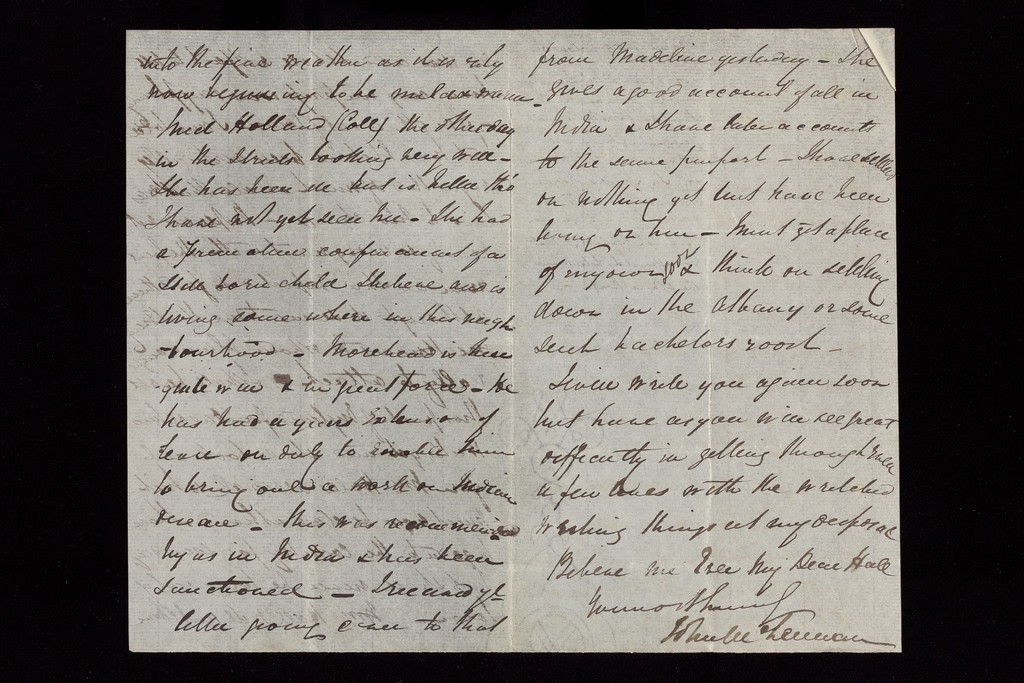 into the fine weather as it is only
now beginning to be mild & warm -
met Holland (Coll) the other day
in the Streets looking very well -
She has been ill but is better tho'
I have not yet seen her - She had
a premature confinement of a
still born child I believe and is
living some where in this neigh
-bourhood - Morehead is here
quite well & in great force - He
has had a years extension of
leave on duty to enable him
to bring out a work on Indian
disease - this was recommended
by us in India & has been
sanctioned - I received yr
letter going over to that
from Madeline yesterday - She
gives a good account of all in
India & I have later accounts
to the same purport - I have settled
on nothing yet but have been
living on here - Must get a place
of my own soon & think on settling
down in the Albany or some
such bachelors roost -
I will write you again soon
but have as you will see great
difficulty in getting through even
a few lines with the wretched
writing things at my disposal
Believe me Ever My Dear Hall
Yours
John McLennan